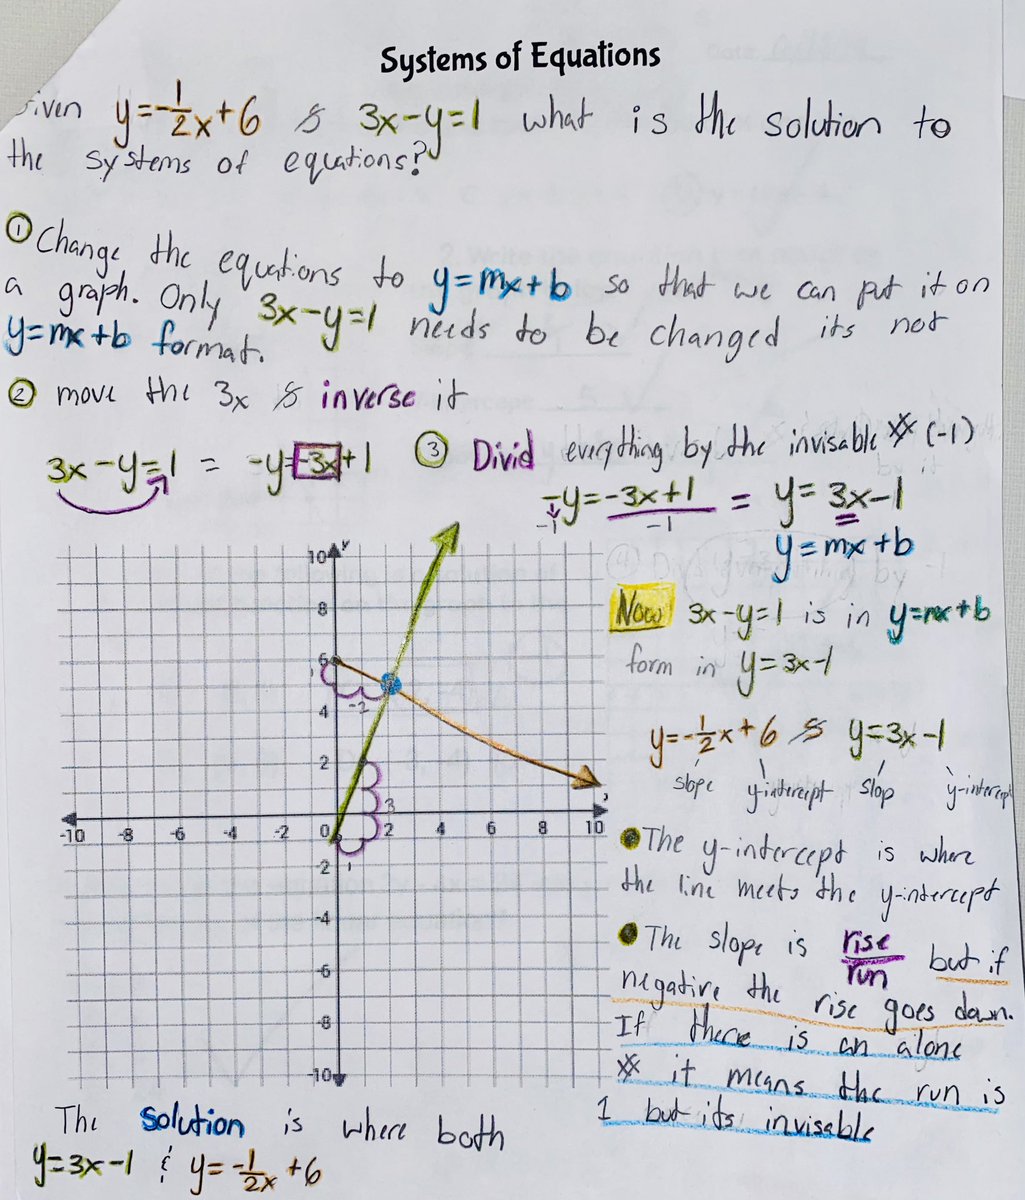 Systems of Equations
iven y=-1/2x+6 & 3x-y=1 what is the solution to
the systems of equations?
① Change the equations to y=mx+b so that we can put it on
a graph. Only 3x-y=1 needs to be changed its not
y=mx+b format.
② move the 3x & inverse it
3x-y=1 = -y=-3x+1
③ Divid everything by the invisable # (-1)
-y=-3x+1 = y=3x-1
-1 -1
y=mx+b
Now 3x-y=1 is in y=mx+b
form in y=3x-1
y=-1/2x+6 & y=3x-1
slope y-intercept slop y-intercept
• The y-intercept is where
the line meets the y-intercept
• The slope is rise/run but if
negative the rise goes down.
If there is an alone
# it means the run is
1 but its invisable
y
10
8
6
4
2
-10 -8 -6 -4 -2 0 2 4 6 8 10
-2
-4
-6
-8
-10
1
-2
3
1
The solution is where both
y=3x-1 & y=-1/2x+6